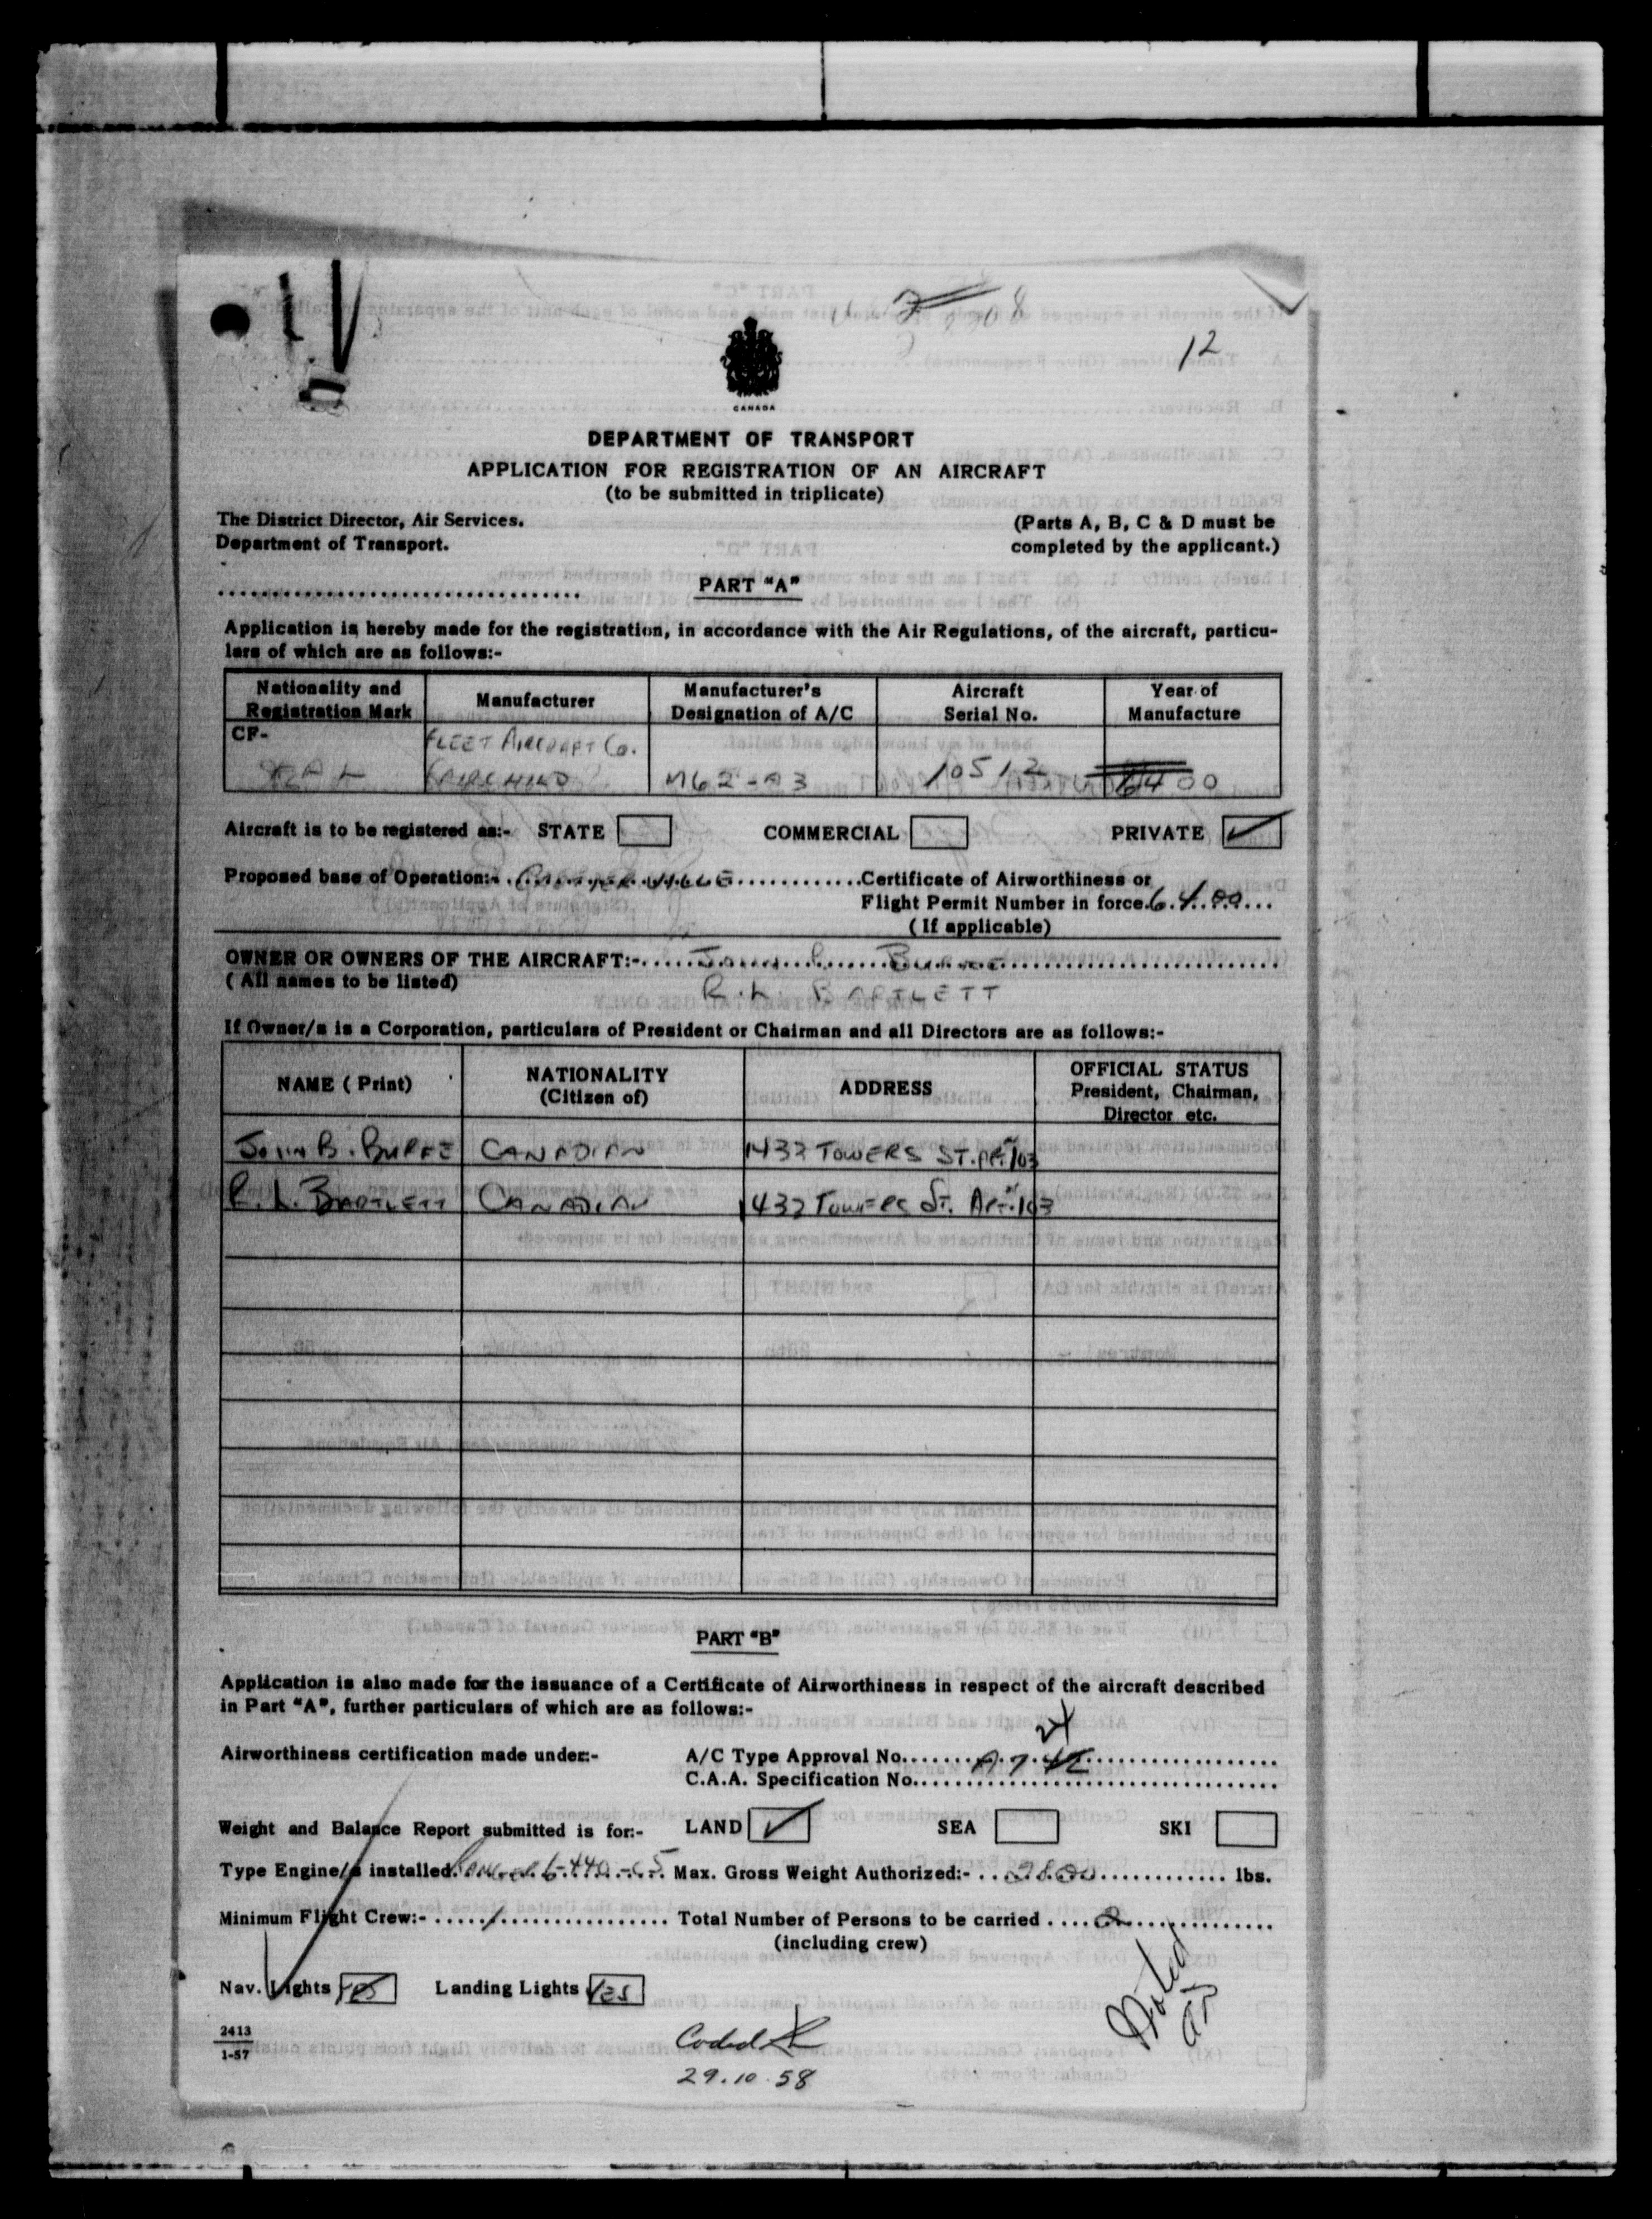 12
CANADA
DEPARTMENT OF TRANSPORT
APPLICATION FOR REGISTRATION OF AN AIRCRAFT
(to be submitted in triplicate)
The District Director, Air Services.
Department of Transport.
(Parts A, B, C & D must be
completed by the applicant.)
PART "A"
Application is hereby made for the registration, in accordance with the Air Regulations, of the aircraft, particu-
lars of which are as follows:-
Nationality and Registration Mark Manufacturer Manufacturer's Designation of A/C Aircraft Serial No. Year of Manufacture
CF- FLEET AIRCRAFT Co.
FAIRCHILD M62-A3 10512 6400
Aircraft is to be registered as:- STATE COMMERCIAL PRIVATE ✓
Proposed base of Operation:- Certificate of Airworthiness or
Flight Permit Number in force. 6400
(If applicable)
OWNER OR OWNERS OF THE AIRCRAFT:-
(All names to be listed) R. L. BARTLETT
If Owner/s is a Corporation, particulars of President or Chairman and all Directors are as follows:-
NAME (Print) NATIONALITY (Citizen of) ADDRESS OFFICIAL STATUS President, Chairman, Director etc.
JOHN B. BURKE CANADIAN 1432 TOWERS ST. APT. 103
R. L. BARTLETT CANADIAN 1432 TOWERS ST. APT. 103
PART "B"
Application is also made for the issuance of a Certificate of Airworthiness in respect of the aircraft described
in Part "A", further particulars of which are as follows:-
Airworthiness certification made under:- A/C Type Approval No.
C.A.A. Specification No.
Weight and Balance Report submitted is for:- LAND ✓ SEA SKI
Type Engine/s installed. 6-440-C5 Max. Gross Weight Authorized:- 2800 lbs.
Minimum Flight Crew:- 1 Total Number of Persons to be carried 2
(including crew)
Nav. Lights YES Landing Lights YES
Noted
2413
1-57
Coded
29.10.58